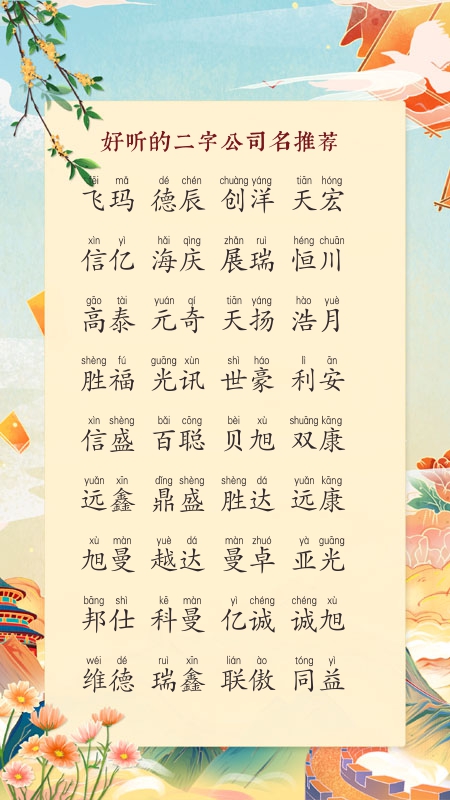 好听的二字公司名推荐
fēi mǎ dé chén chuàng yáng tiān hóng
飞玛 德辰 创洋 天宏
xìn yì hǎi qìng zhǎn ruì héng chuān
信亿 海庆 展瑞 恒川
gāo tài yuán qí tiān yáng hào yuè
高泰 元奇 天扬 浩月
shèng fú guāng xùn shì háo lì ān
胜福 光讯 世豪 利安
xìn shèng bǎi cōng bèi xù shuāng kāng
信盛 百聪 贝旭 双康
yuǎn xīn dǐng shèng shèng dá yuǎn kāng
远鑫 鼎盛 胜达 远康
xù màn yuè dá màn zhuó yà guāng
旭曼 越达 曼卓 亚光
bāng shì kē màn yì chéng chéng xù
邦仕 科曼 亿诚 诚旭
wéi dé ruì xīn lián ào tóng yì
维德 瑞鑫 联傲 同益